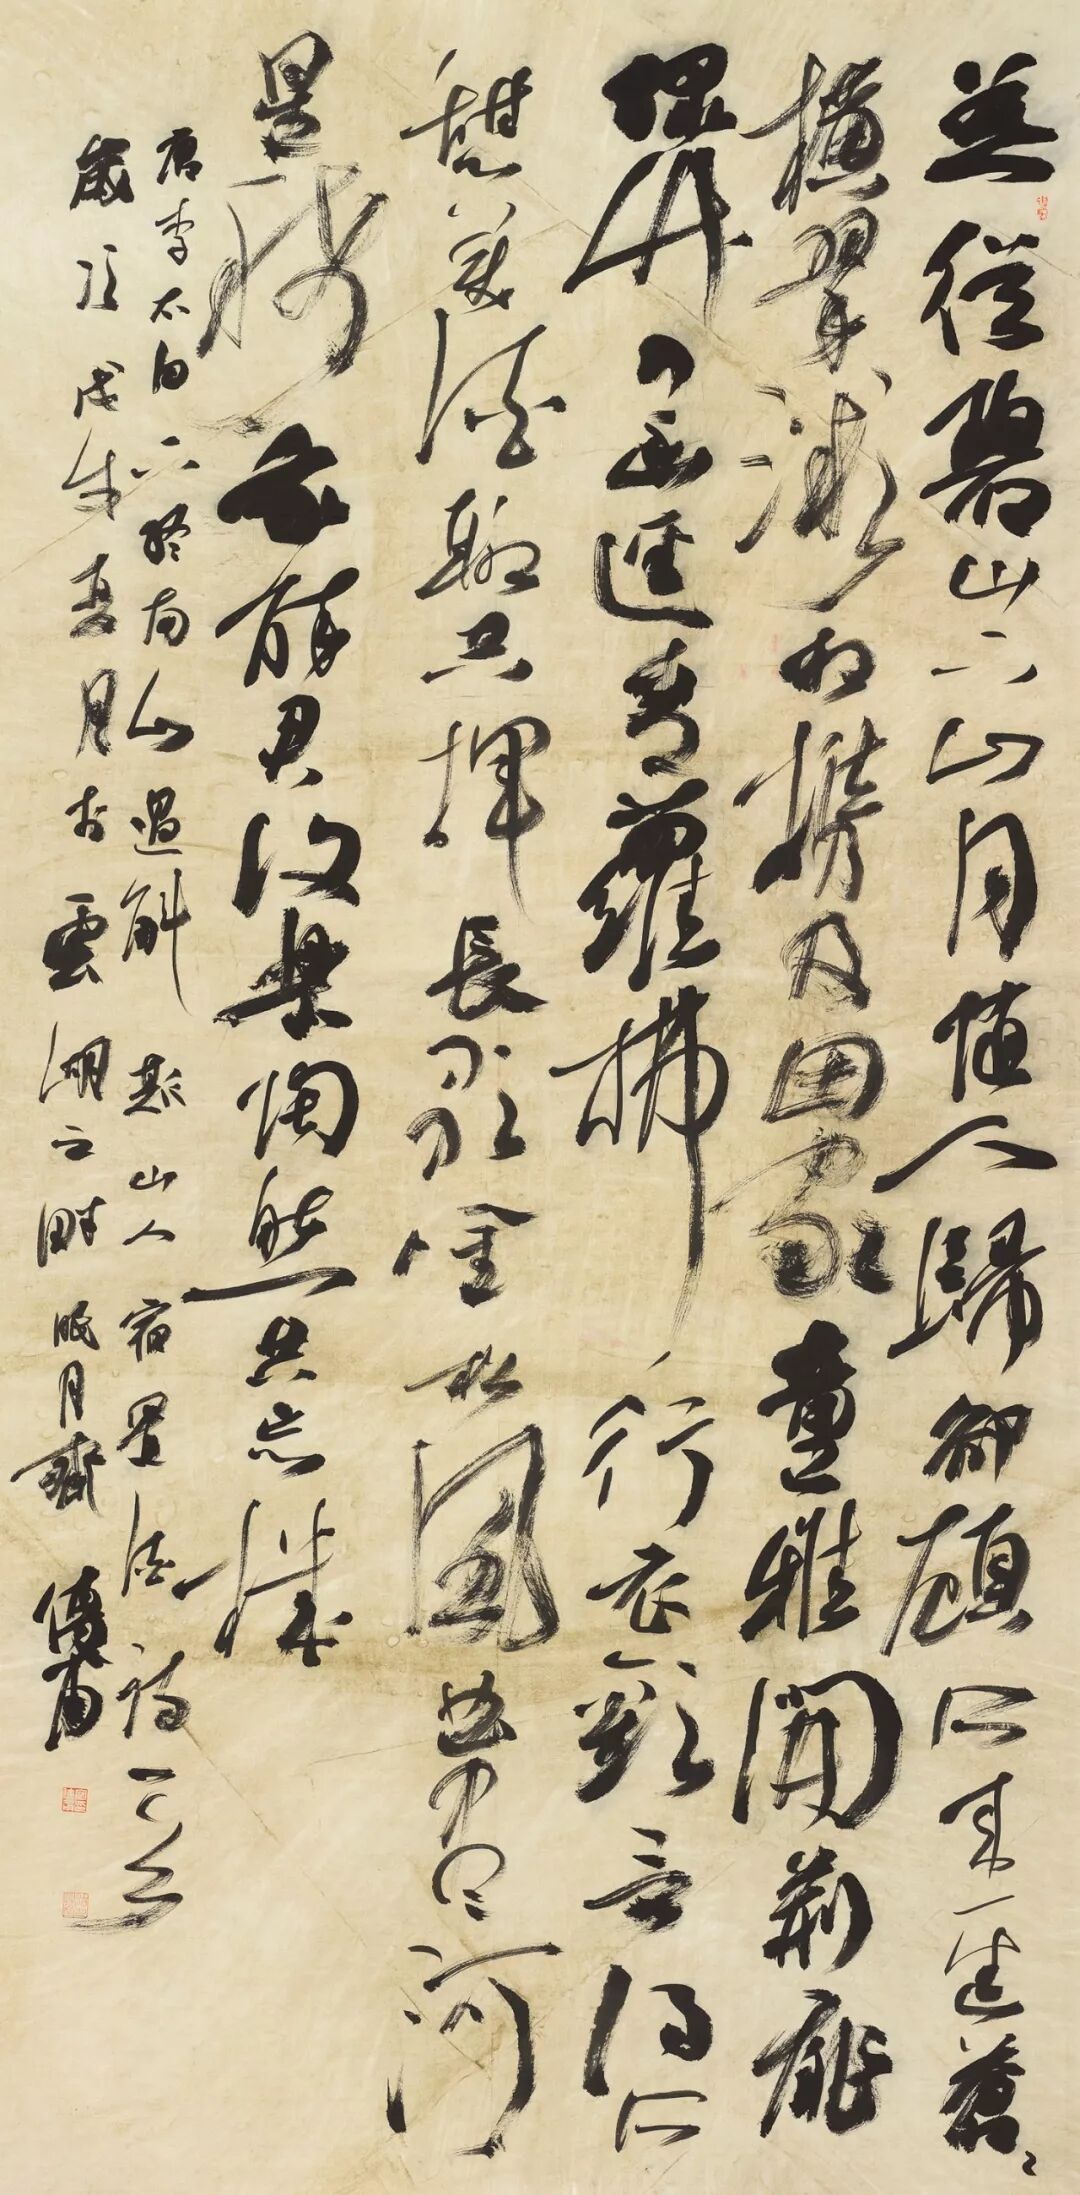 暮從碧山下山月隨人歸卻顧所來徑蒼〻
橫翠微相攜及田家童稚開荊扉
綠竹入幽徑青蘿拂行衣歡言得所
憩美酒聊共揮長歌吟松風曲盡河
星稀我醉君復樂陶然共忘機
唐李太白下終南山過斛斯山人宿置酒詩一首
歲次戊戌月於雲湖之畔眠月齋